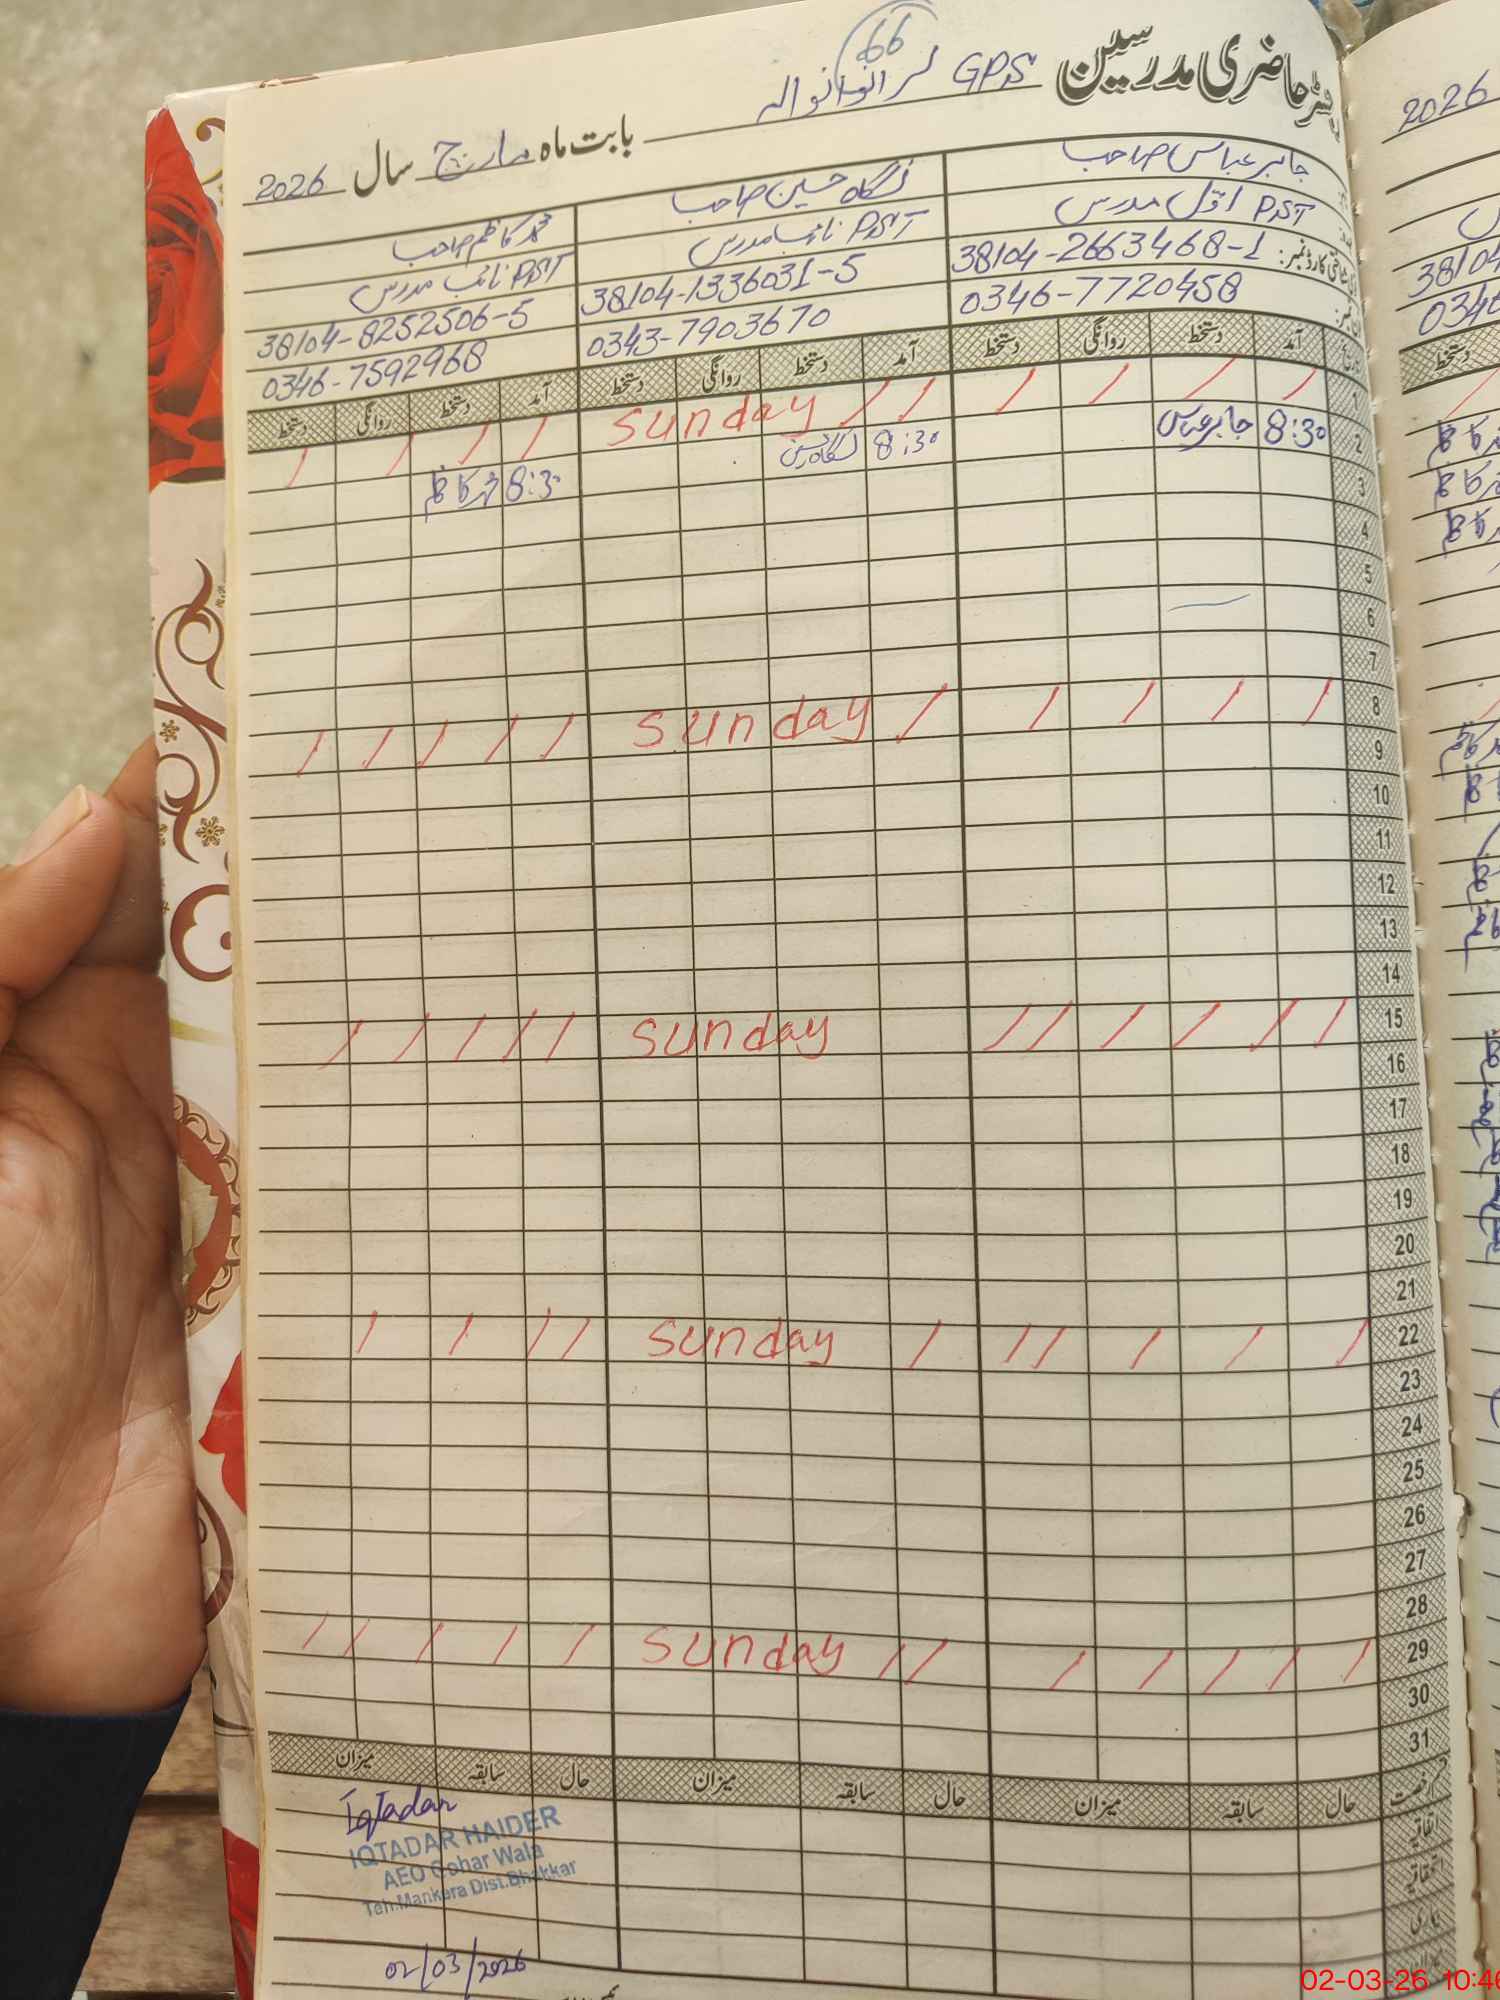 66
رجسٹر حاضری مدرسین GPS لرانوانوالہ بابت ماہ مارچ سال 2026
جابر عباس صاحب
PST اوّل مدرس
شناختی کارڈ نمبر: 38104-2663468-1
0346-7720458
نگاہ حسین صاحب
PST نائب مدرس
38104-1336031-5
0343-7903670
محمد کاظم صاحب
PST نائب مدرس
38104-8252506-5
0346-7592968
آمد دستخط روانگی دستخط آمد دستخط روانگی دستخط آمد دستخط روانگی دستخط
1 Sunday
2 8:30 جابر عباس 8:30 نگاہ حسین 8:30 محمد کاظم
3
4
5
6
7
8 Sunday
9
10
11
12
13
14
15 Sunday
16
17
18
19
20
21
22 Sunday
23
24
25
26
27
28
29 Sunday
30
31
رخصت حال سابقہ میزان حال سابقہ میزان حال سابقہ میزان
اتفاقیہ
استحقاقیہ
بیماری
Iqtadar
IQTADAR HAIDER
AEO Gohar Wala
Teh.Mankera Dist.Bhakkar
02/03/2026
2026
38104
0346
دستخط
02-03-26 10:46